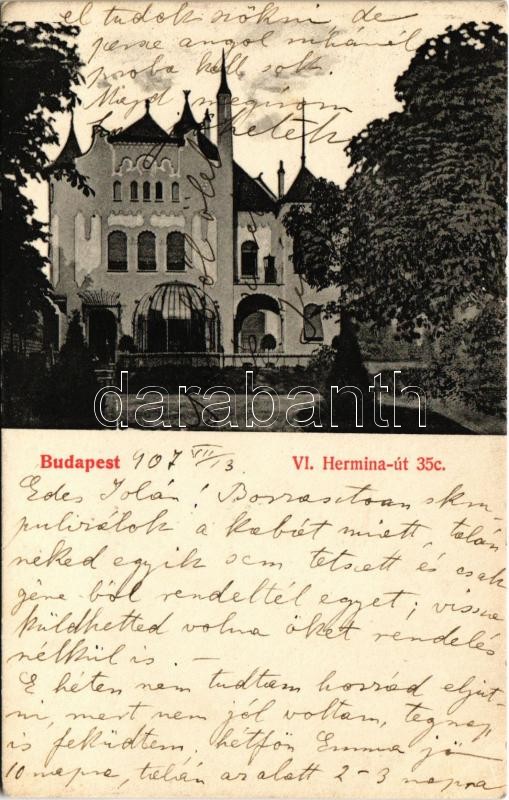 el tudok szökni de
persze angol ruhánál
proba kell sok.
Majd megirom
darabanth
Budapest 907 VII/13. VI. Hermina-út 35c.
Edes Iolán! Borrasztoan skru-
pulirálok a kabát miatt, talán
néked egyik sem tetszett és csak
gêne ból rendeltél egyet; vissza
küldhetted volna őket rendelés
nélkül is. -
E héten nem tudtam hozzád eljut-
ni, mert nem jól voltam, tegnap
is feküdtem, hétfőn Emma jö
10 napra, talán az alatt 2-3 napra